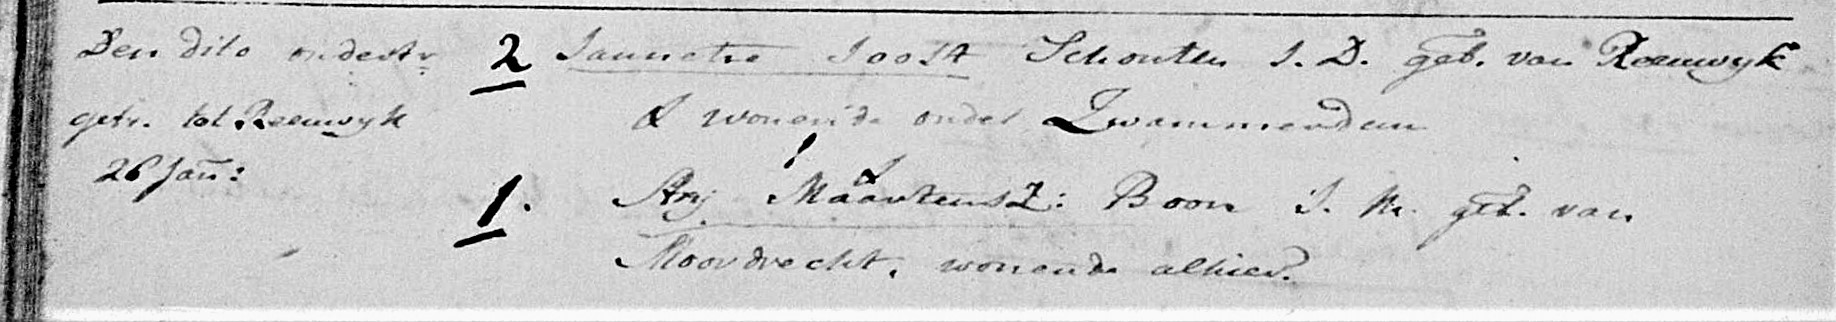 Den dito ondertr. 2 Jannetie Joost Schouten J. D. geb. van Reeuwyk
getr. tot Reeuwyk & wonende onder Zwammerdam
26 Jan:
1. Arij Maartensz: Boon J. M. geb. van
Moordrecht, wonende alhier.